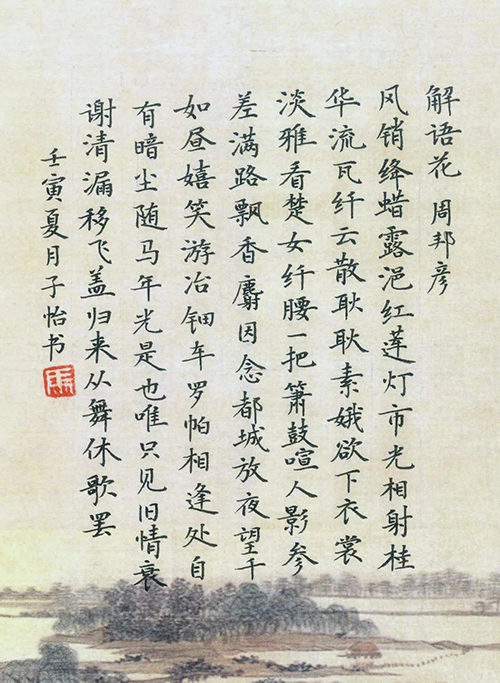 解语花 周邦彦
风销绛蜡露浥红莲灯市光相射桂
华流瓦纤云散耿耿素娥欲下衣裳
淡雅看楚女纤腰一把箫鼓喧人影参
差满路飘香麝因念都城放夜望千
如昼嬉笑游冶钿车罗帕相逢处自
有暗尘随马年光是也唯只见旧情衰
谢清漏移飞盖归来从舞休歌罢
壬寅夏月子怡书